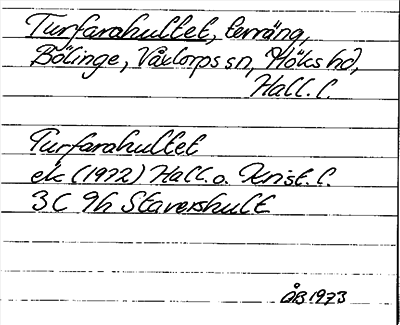 Turfarahultet, terräng,
Bölinge, Våxtorps sn, Höks hd,
Hall. l.
Turfarahultet
ek (1972) Hall. o. Krist. l.
3C 9h Stavershult
ÅB 1973